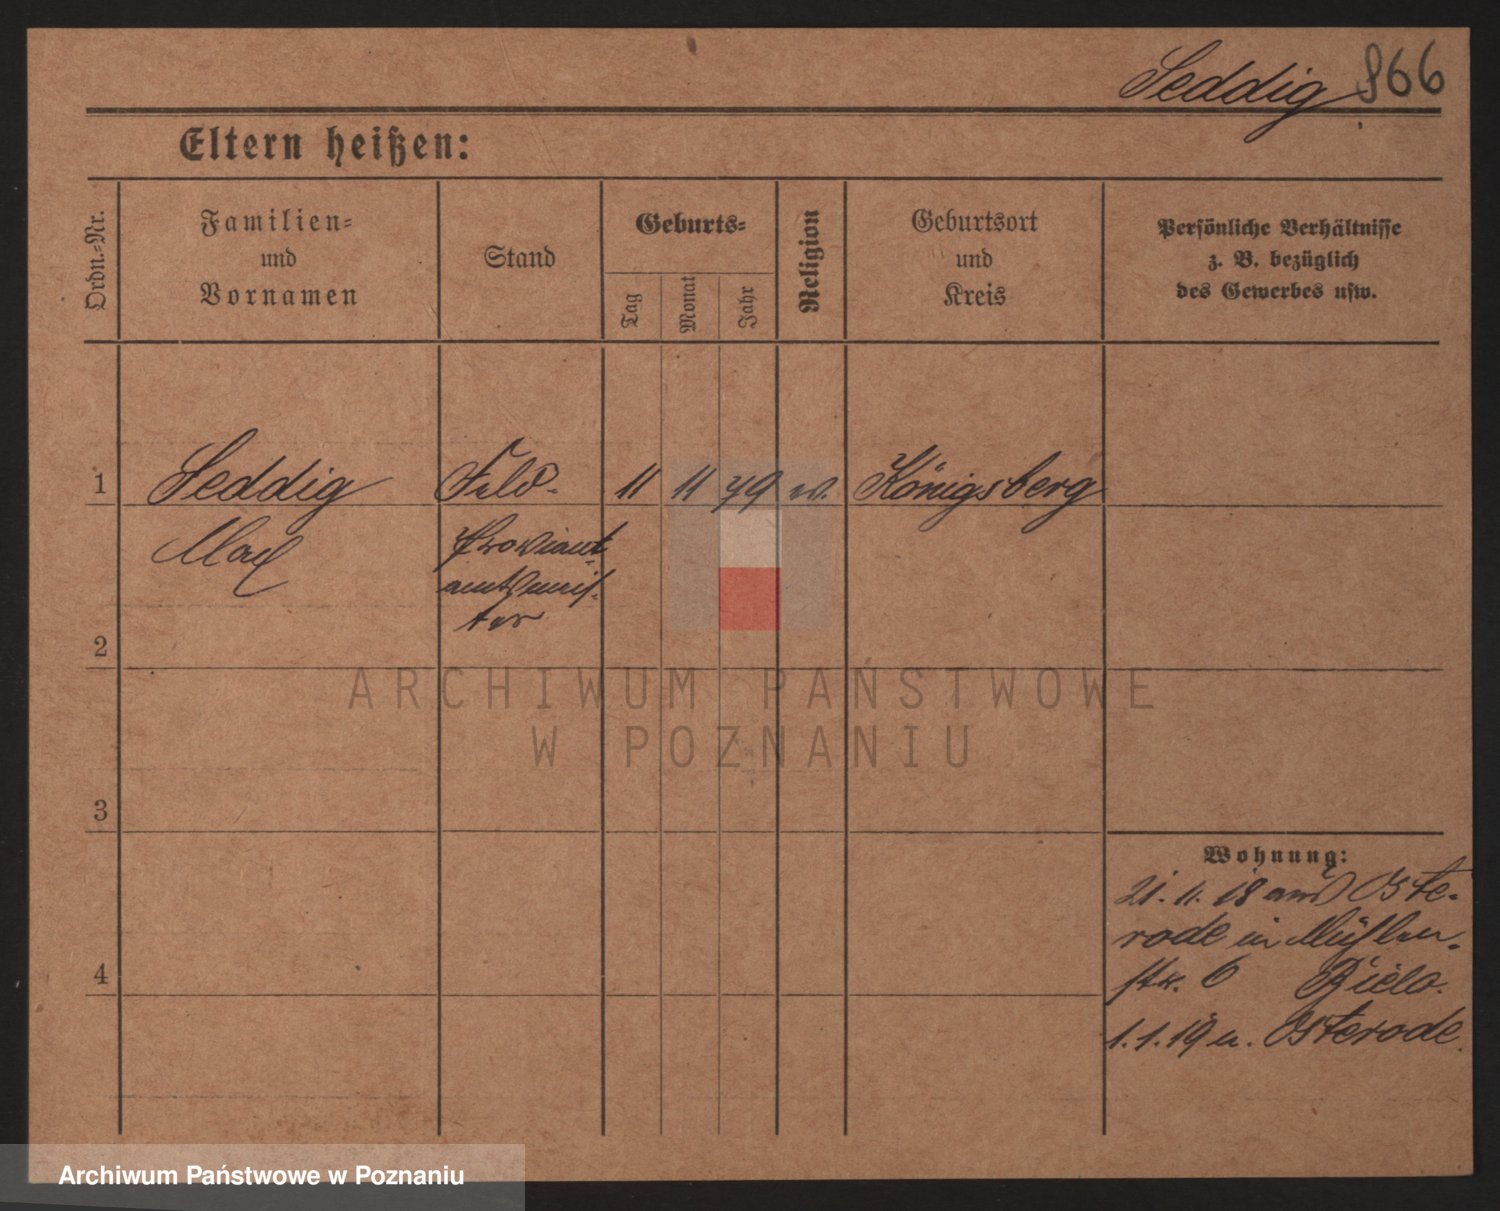 Seddig 866
Eltern heißen:
Ordn.-Nr.
Familien-
und
Vornamen
Stand
Geburts-
Tag
Monat
Jahr
Religion
Geburtsort
und
Kreis
Persönliche Verhältnisse
z. B. bezüglich
des Gewerbes usw.
1 Seddig Feld- 11 11 79 ev. Königsberg
Max Proviant
amtsmeis-
ter
2
3
4
Wohnung:
21. 11. 18 aus Oste-
rode in Mühlen-
str. 6
1. 1. 19 n. Osterode.
ARCHIWUM PAŃSTWOWE
W POZNANIU
Archiwum Państwowe w Poznaniu